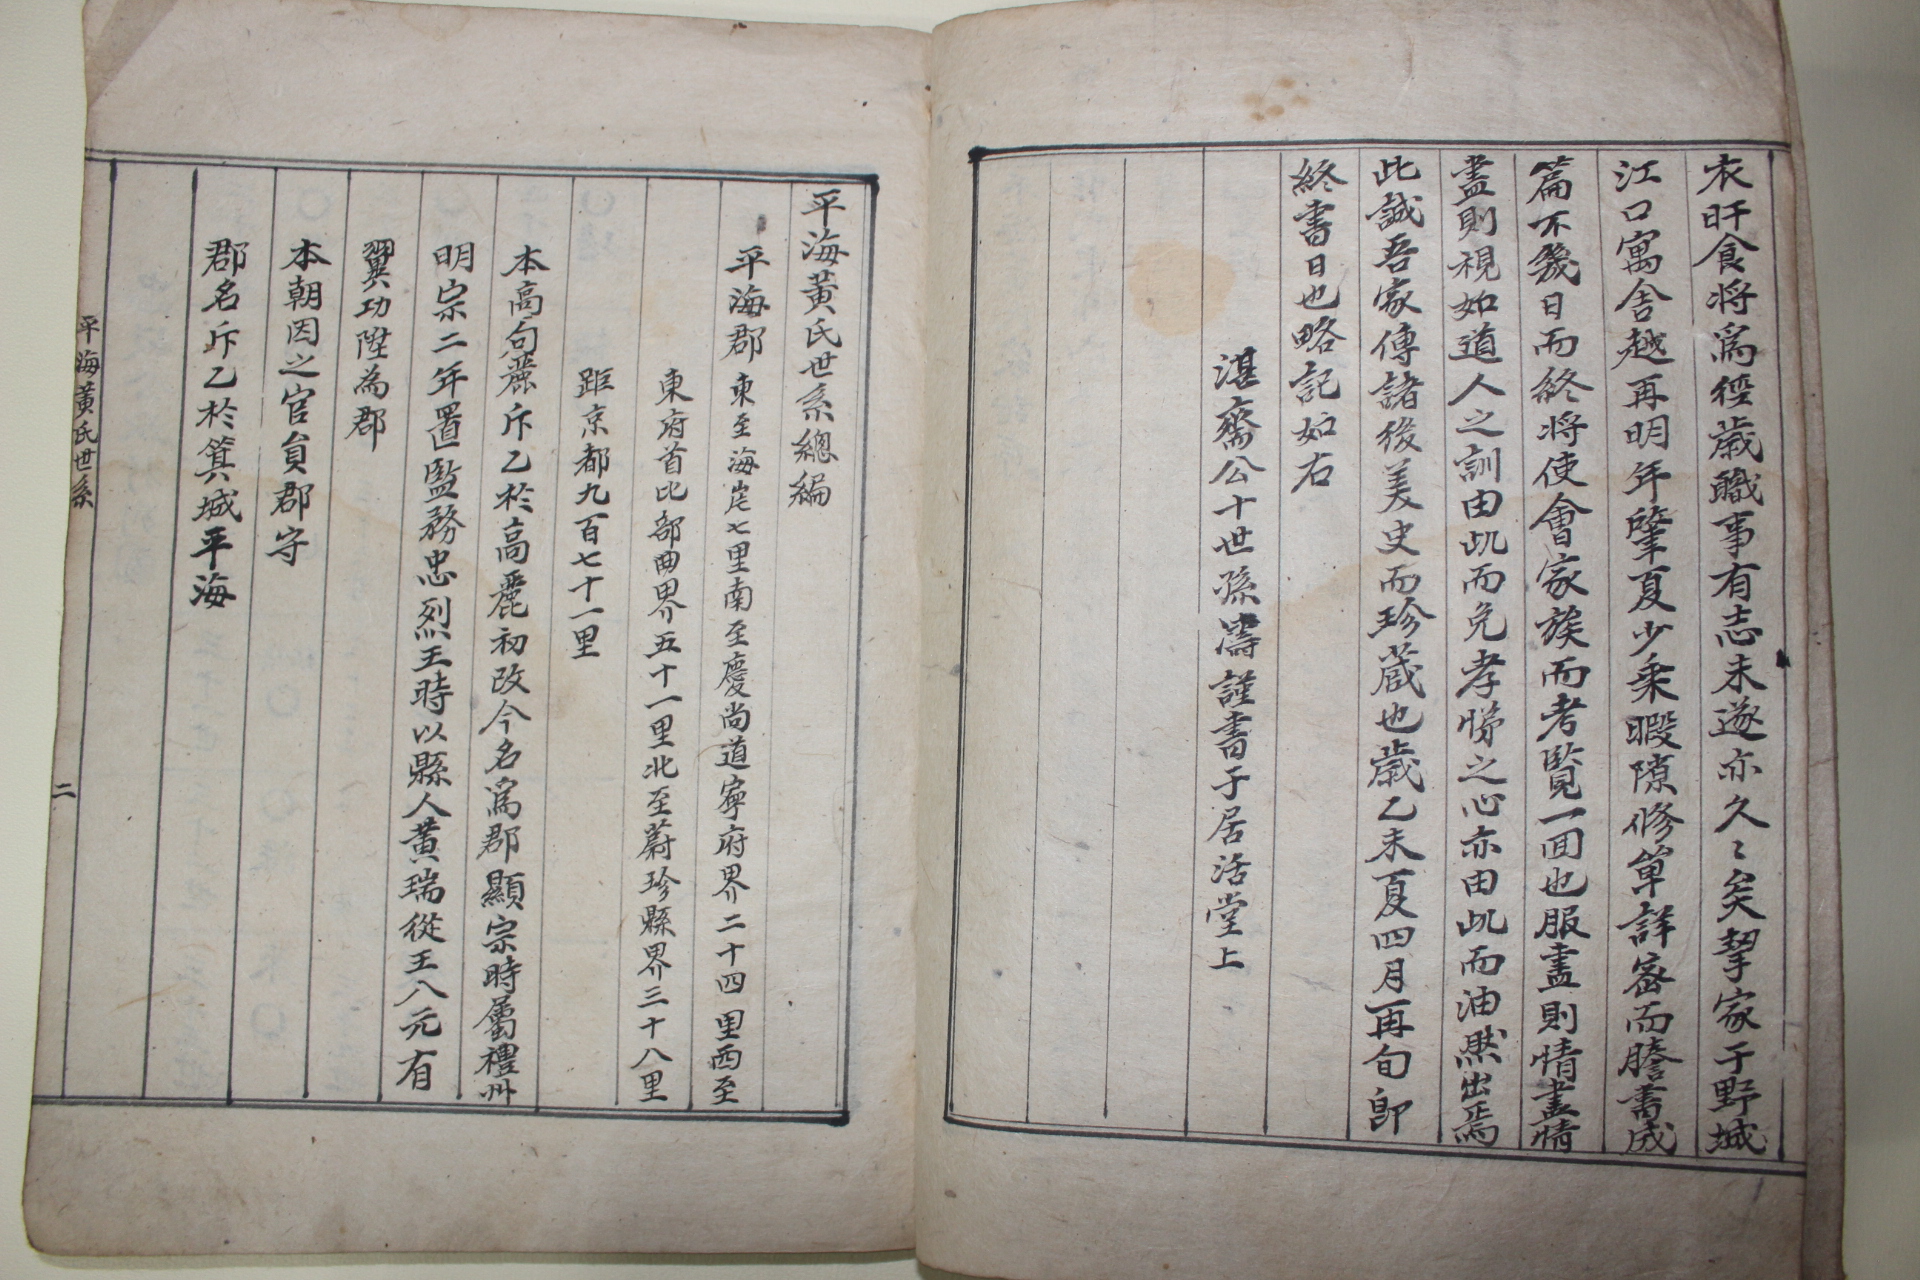 衣旰食將爲徑歲職事有志未遂亦久〻矣挈家于野城
江口寓舍越再明年肇夏少乘暇隙修單詳密而謄書成
篇不幾日而終將使會家族而考覧一回也服盡則情盡情
盡則視如道人之訓由此而免孝悌之心亦由此而油然出焉
此誠吾家傳諸後美史而珍蔵也歲乙未夏四月再旬卽
終書日也略記如右
湛齋公十世孫濤謹書于居活堂上
平海黃氏世系總編
平海郡 東至海岸七里南至慶尚道寧府界二十四里西至
東府首比部曲界五十一里北至蔚珍縣界三十八里
距京都九百七十一里
本高句麗斥乙於高麗初改今名爲郡顯宗時屬禮州
明宗二年置監務忠烈王時以縣人黃瑞從王八元有
翼功陞為郡
本朝因之官員郡守
郡名斥乙於箕城平海
平海黃氏世系
二